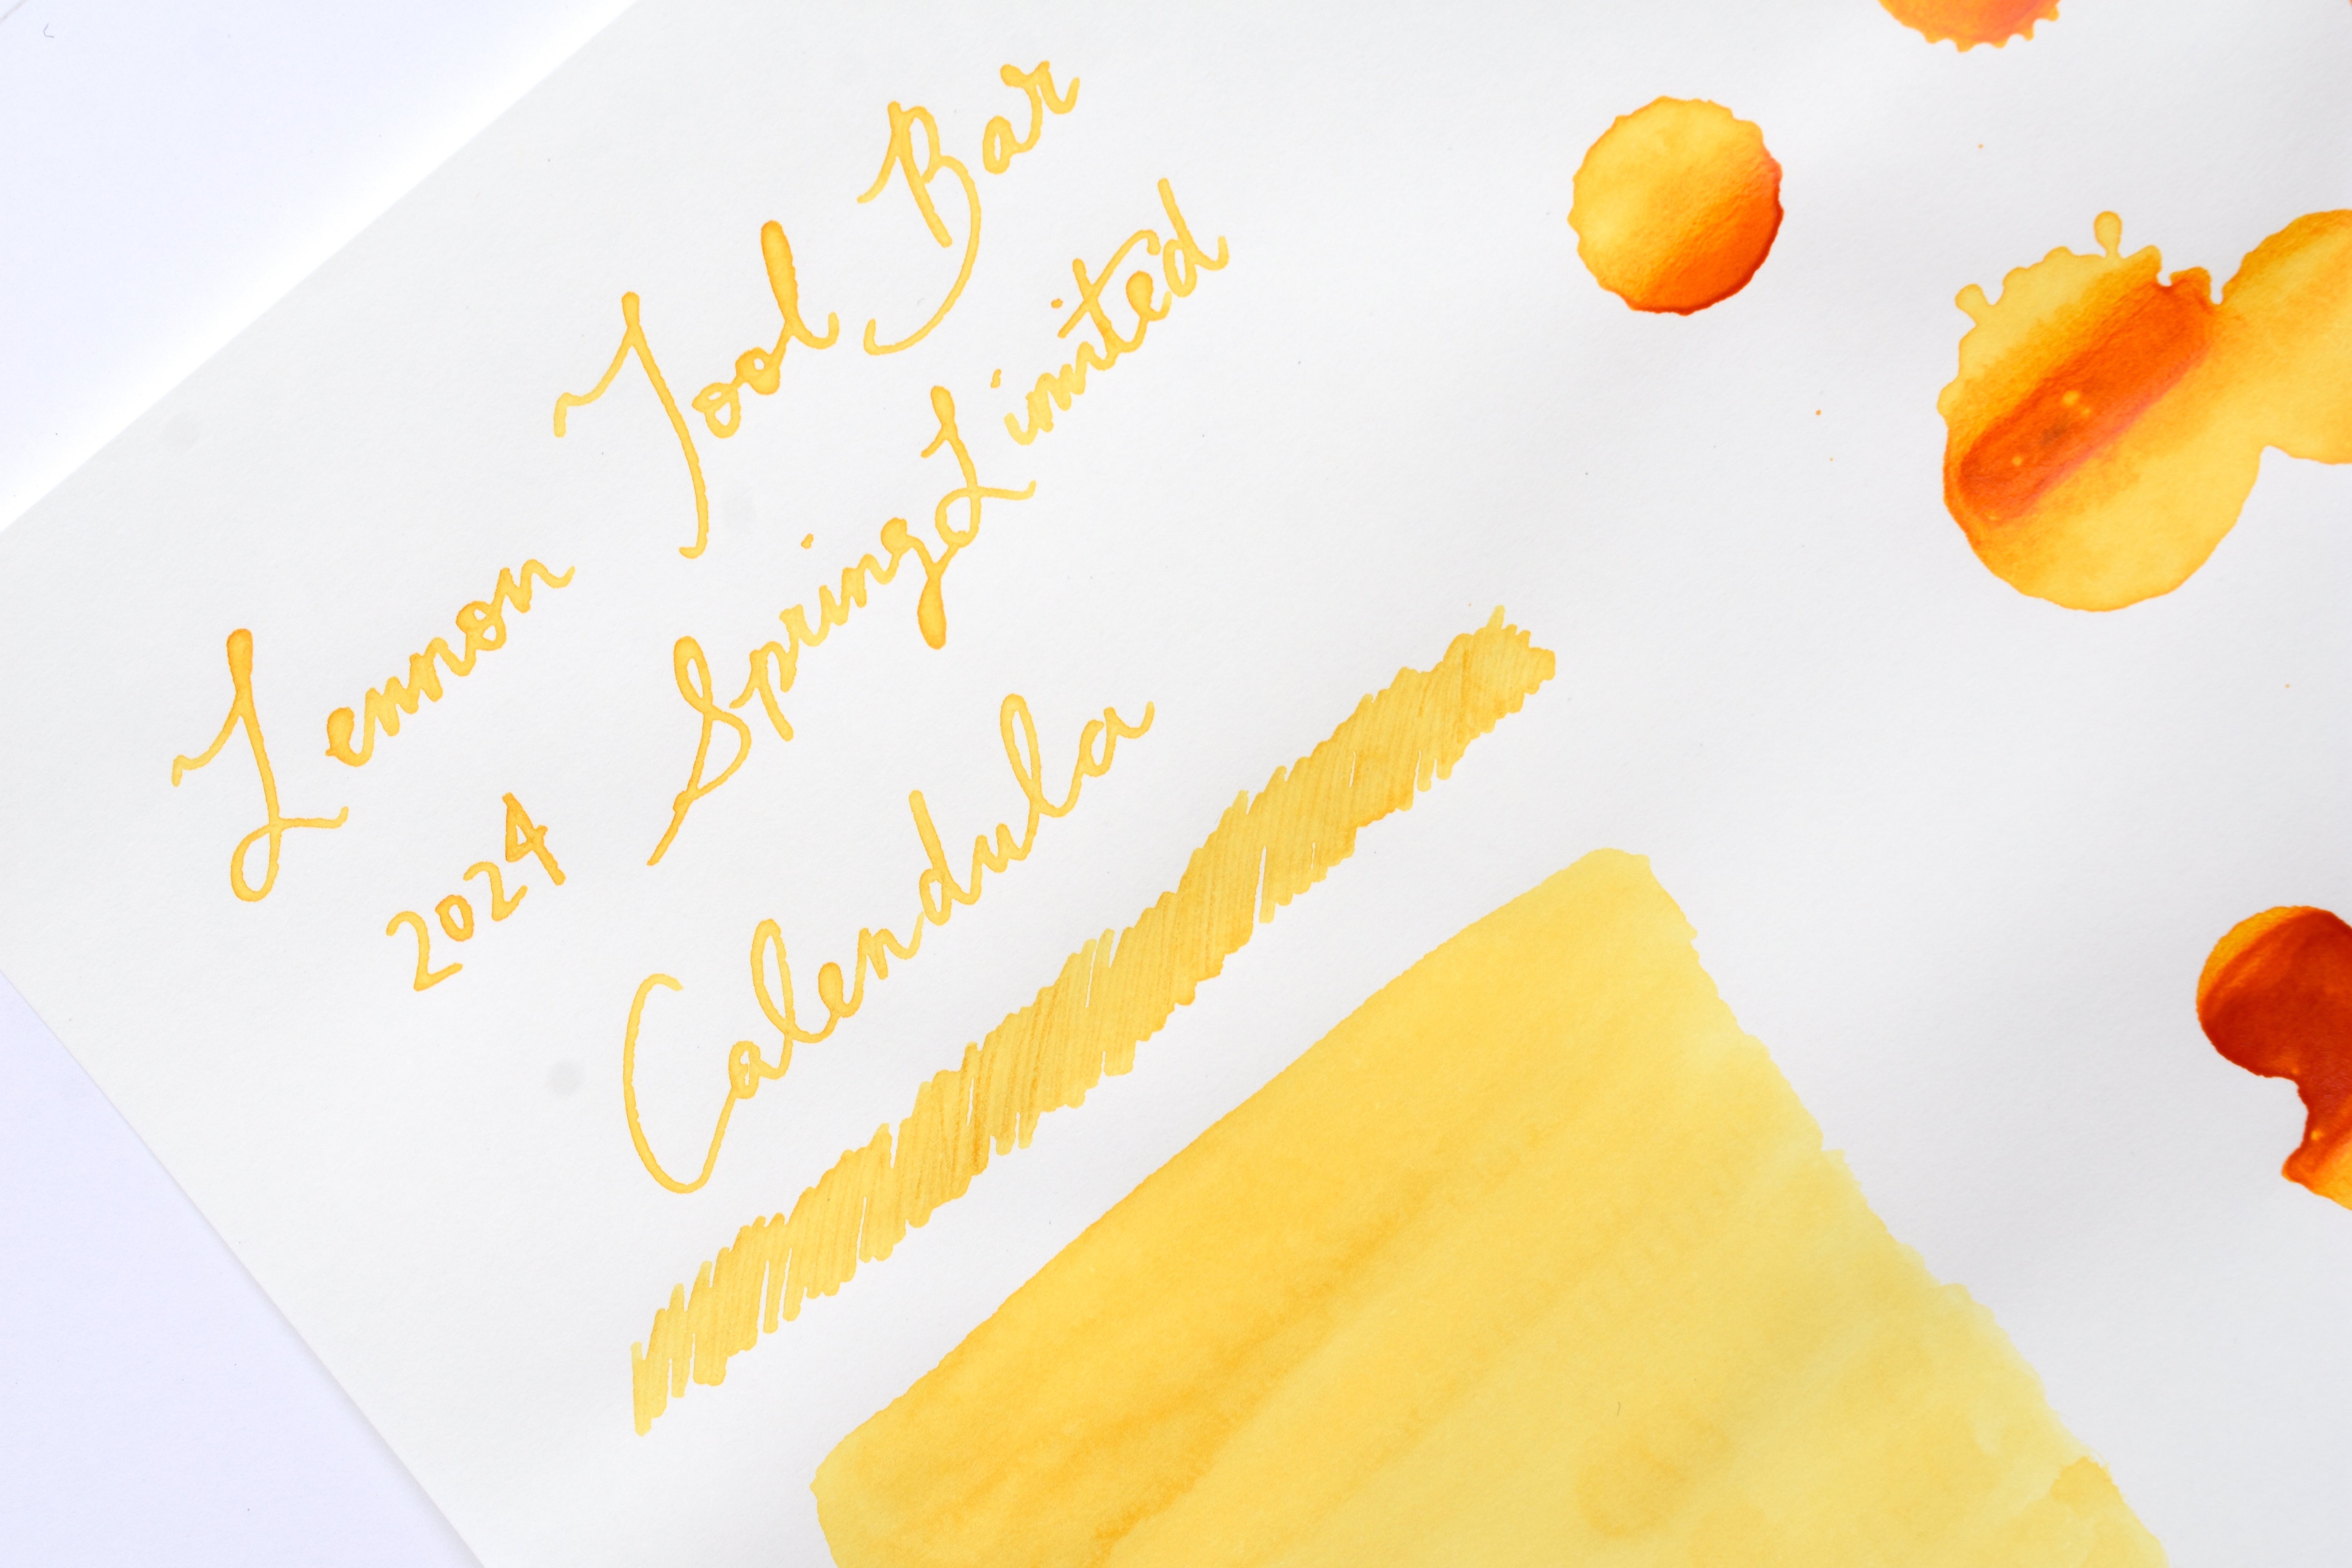 Lennon Tool Bar
2024 Spring Limited
Calendula